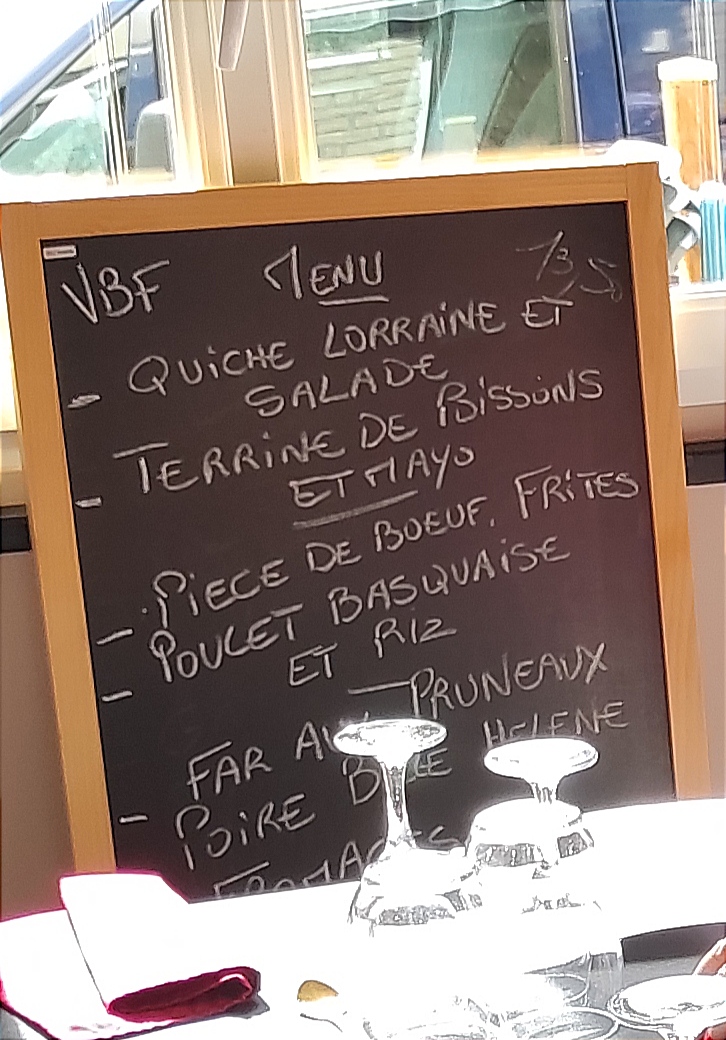 VBF MENU 13,5
- QUICHE LORRAINE ET
SALADE
- TERRINE DE POISSONS
ET MAYO
- PIECE DE BOEUF. FRITES
- POULET BASQUAISE
ET RIZ
- FAR AUX PRUNEAUX
POIRE BELLE HELENE
FROMAGES